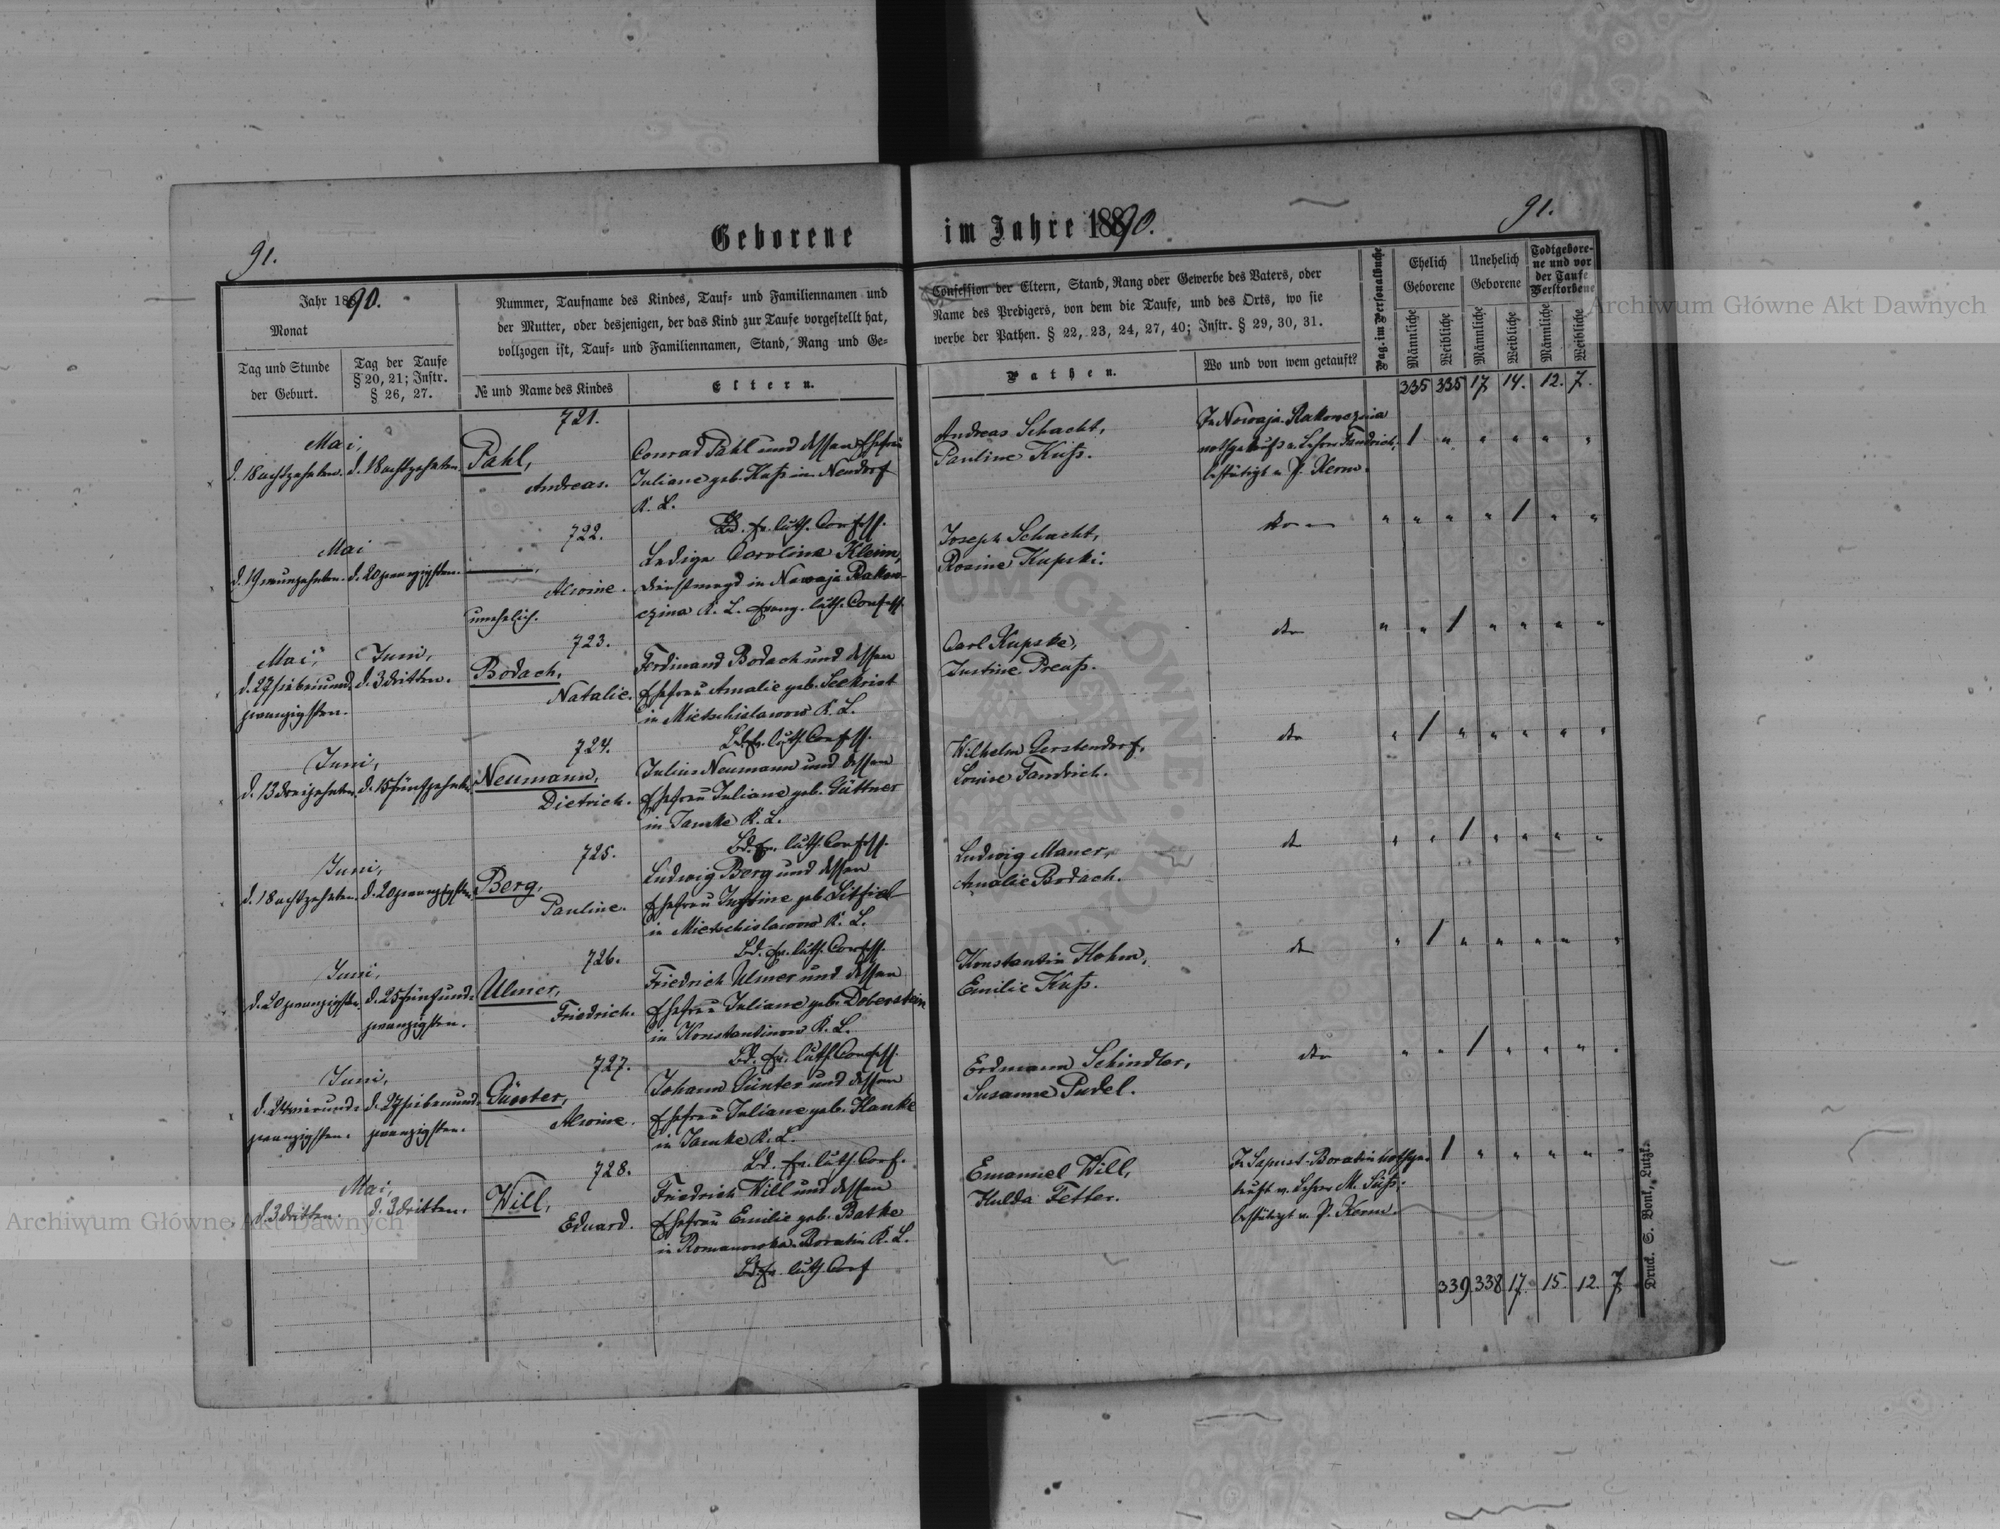 91.
Geborene
im Jahre 1890.
91.
Jahr 1890.
Monat
Tag und Stunde
der Geburt.
Tag der Taufe
§ 20, 21; Instr.
§ 26, 27.
Nummer, Taufname des Kindes, Tauf- und Familiennamen und
der Mutter, oder desjenigen, der das Kind zur Taufe vorgestellt hat,
vollzogen ist, Tauf- und Familiennamen, Stand, Rang und Ge-
№ und Name des Kindes
Eltern.
Confession der Eltern, Stand, Rang oder Gewerbe des Vaters, oder
Name des Predigers, von dem die Taufe, und des Orts, wo sie
werbe der Pathen. § 22, 23, 24, 27, 40; Instr. § 29, 30, 31.
Pathen.
Wo und von wem getauft?
Pag. im Personalbuche
Ehelich
Geborene
Unehelich
Geborene
Todtgebore-
ne und vor
der Taufe
Verstorbene
Männliche
Weibliche
Männliche
Weibliche
Männliche
Weibliche
335 335 17 14. 12. 7.
721.
Mai,
d. 18 achtzehnten. d. 18 achtzehnten.
Pahl,
Andreas.
Conrad Pahl und dessen Ehefrau
Juliane geb. Kuß in Neudorf
K. L.
Bd. Ev. luth. Confess.
Andreas Schacht,
Pauline Kuß.
In Nowaja-Rakowczina
nothgetauft v. Lehrer Fandrich,
bestätigt v. P. Kerm.
1 " " " " "
722.
Mai
d. 19 neunzehnten. d. 20 zwanzigsten.
Alwine.
unehelich.
Ledige Caroline Kleim,
Dienstmagd in Nowaja Rakow-
czina K. L. Evang. luth. Confess.
Joseph Schacht,
Rosine Kupski.
" " " " 1 " "
723.
Mai, Juni,
d. 27 siebenund- d. 3 dritten.
zwanzigsten.
Bodach,
Natalie.
Ferdinand Bodach und dessen
Ehefrau Amalie geb. Seekrist
in Mietschislawow K. L.
Bd. Ev. luth. Confess.
Carl Kupske,
Justine Preuß.
dto
" " 1 " " " "
724.
Juni,
d. 13 dreizehnten. d. 15 fünfzehnten.
Neumann,
Dietrich.
Julius Neumann und dessen
Ehefrau Juliane geb. Güttner
in Jamke K. L.
Bd. Ev. luth. Confess.
Wilhelm Gerstendorf,
Louise Fandrich.
dto
" 1 " " " " "
725.
Juni,
d. 18 achtzehnten. d. 20 zwanzigsten.
Berg,
Pauline.
Ludwig Berg und dessen
Ehefrau Justine geb. Litfiel
in Mietschislawow K. L.
Bd. Ev. luth. Confess.
Ludwig Mauer,
Amalie Bodach.
" " 1 " " " "
726.
Juni,
d. 20 zwanzigsten. d. 25 fünfund-
zwanzigsten.
Ulmer,
Friedrich.
Friedrich Ulmer und dessen
Ehefrau Juliane geb. Doberstein
in Konstantinow K. L.
Bd. Ev. luth. Confess.
Konstantin Hohm,
Emilie Kuß.
" 1 " " " " "
727.
Juni,
d. 24 vierund- d. 27 siebenund-
zwanzigsten. zwanzigsten.
Günter,
Alwine.
Johann Günter und dessen
Ehefrau Juliane geb. Hanke
in Jamke K. L.
Bd. Ev. luth. Conf.
Erdmann Schindler,
Susanne Pudel.
dto
" " 1 " " " "
728.
Mai,
d. 3 dritten. d. 3 dritten.
Will,
Eduard.
Friedrich Will und dessen
Ehefrau Emilie geb. Batke
in Romanowka-Boratin K. L.
Bd. Ev. luth. Conf
Emanuel Will,
Hulda Fetler.
In Sapust-Boratin nothge-
tauft v. Lehrer M. Süß;
bestätigt v. P. Kerm.
1 " " " " "
339. 338 17. 15. 12. 7
Druck. S. Bonk, Lutzk.
Archiwum Główne Akt Dawnych
Archiwum Główne Akt Dawnych